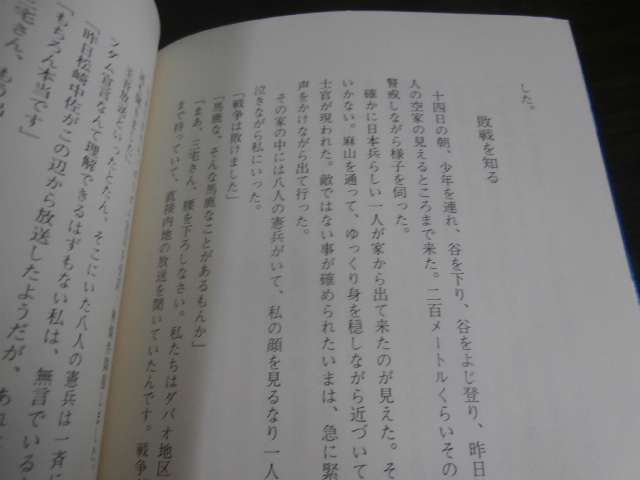 した。
敗戦を知る
十四日の朝、少年を連れ、谷を下り、谷をよじ登り、昨日
人の空家の見えるところまで来た。二百メートルくらいその
警戒しながら様子を伺った。
確かに日本兵らしい一人が家から出て来たのが見えた。そ
いかない。麻山を通って、ゆっくり身を穏しながら近づいて
士官が現われた。敵ではない事が確められたいまは、急に緊
声をかけながら出て行った。
その家の中には八人の憲兵がいて、私の顔を見るなり一人
泣きながら私にいった。
「戦争は敗けました」
「馬鹿な、そんな馬鹿なことがあるもんか」
「まあ、三宅さん、腰を下ろしなさい。私たちはダバオ地区
まで持っていて、直接内地の放送を聞いていたんです。戦争
そこにいた八人の憲兵は一斉に
ンダム宣言なんて理解できるはずもない私は、無言でいる
「昨日松崎中佐がこの辺から放送したようだが、あれ
「もちろん本当です」
三宅さん、